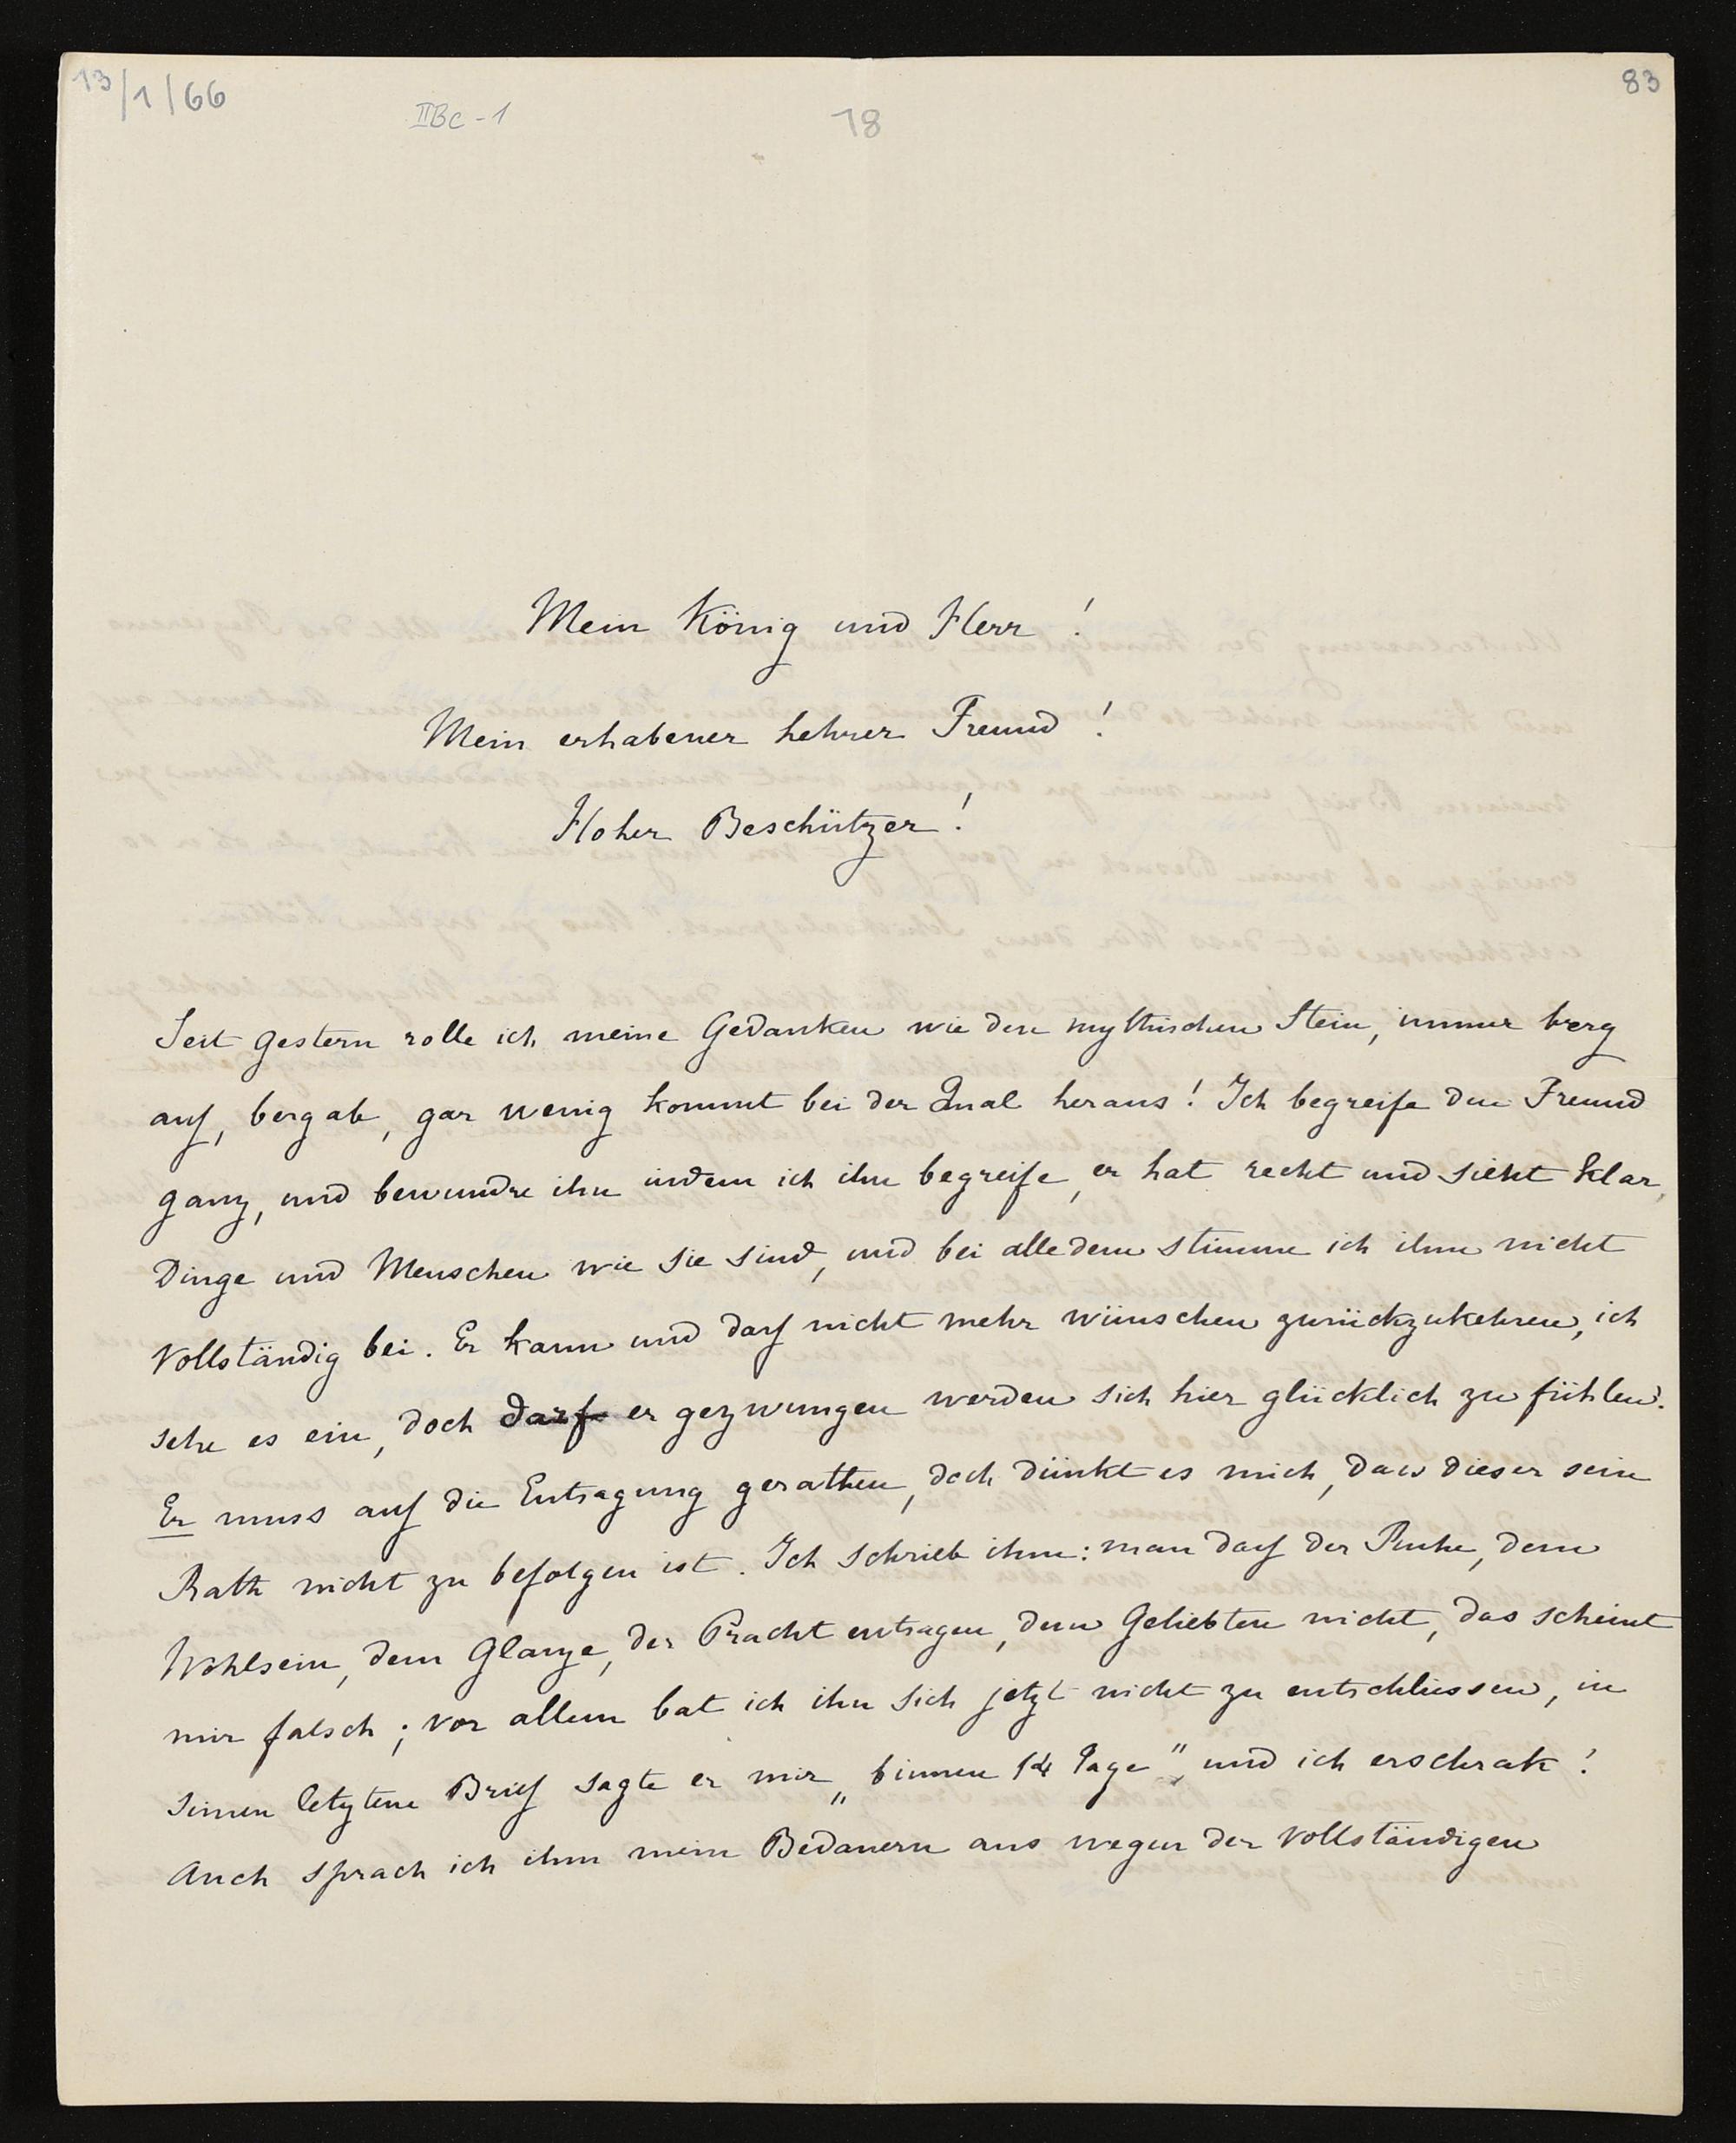 13/1/66
IIBc-1
18
83
Mein König und Herr!
Mein erhabener hehrer Freund!
Hoher Beschützer!
Seit gestern rolle ich meine Gedanken wie den mythischen Stein, immer berg
auf, bergab, gar wenig kommt bei der Qual heraus! Ich begreife den Freund
ganz, und bewundre ihn indem ich ihn begreife, er hat recht und sieht klar,
Dinge und Menschen wie sie sind, und bei alledem stimme ich ihm nicht
vollständig bei. Er kann und darf nicht mehr wünschen zurückzukehren, ich
sehe es ein, doch darf er gezwungen werden sich hier glücklich zu fühlen.
Er muss auf die Entsagung gerathen, doch dünkt es mich, dass dieser sein
Rath nicht zu befolgen ist. Ich schrieb ihm: man darf der Ruhe, dem
Wohlsein, dem Glanze, der Pracht entsagen, dem Geliebten nicht, das scheint
mir falsch; vor allem bat ich ihn sich jetzt nicht zu entschliessen, in
seinem letzten Brief sagte er mir „binnen 14 Tage" und ich erschrak!
Auch sprach ich ihm mein Bedauern aus wegen der vollständigen